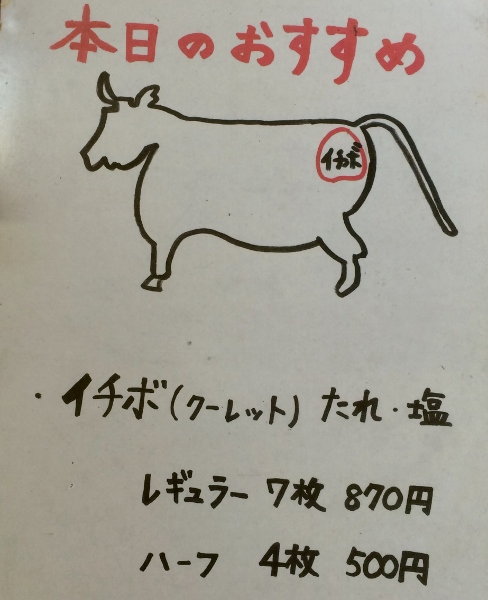 本日のおすすめ
イチボ
・イチボ(クーレット) たれ・塩
レギュラー 7枚 870円
ハーフ 4枚 500円